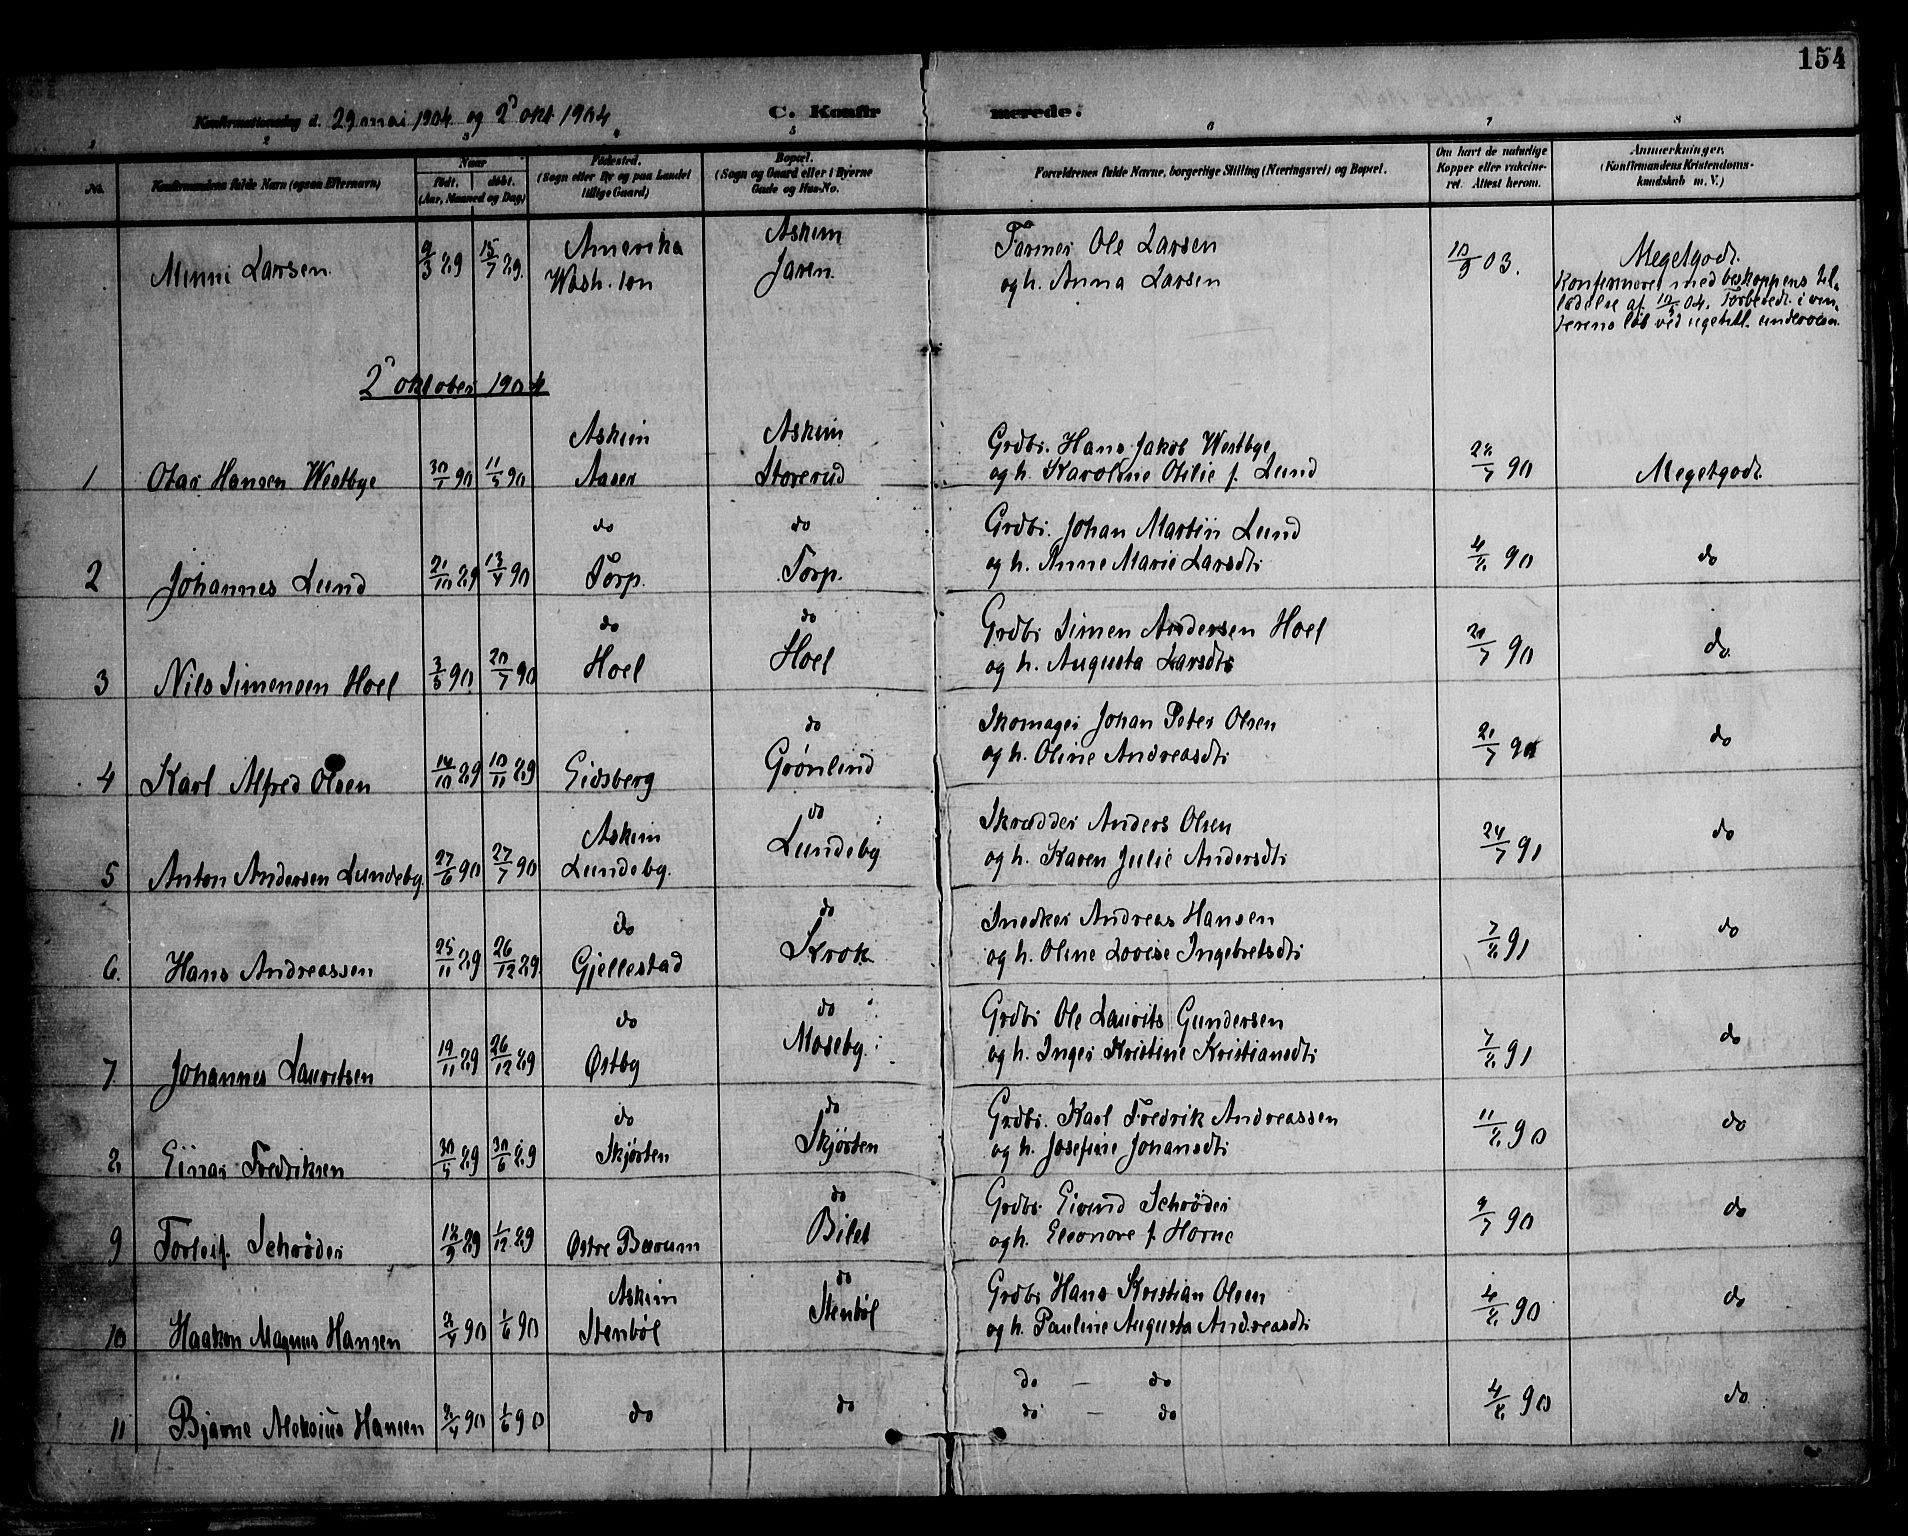 154
Konfirmationsdag d. 29 mai 1904 og 2 okt 1904. C. Konfirmerede.
2 3 4 5 6 7 8
No. Konfirmandens fulde Navn (ogsaa Efternavn) Naar født. døbt. (Aar, Maaned og Dag) Fødested. (Sogn eller By og paa Landet tillige Gaard) Bopæl. (Sogn og Gaard eller i Byerne Gade og Hus-No. Forældrenes fulde Navne, borgerlige Stilling (Næringsvei) og Bopæl. Om havt de naturlige Kopper eller vakcineret. Attest herom. Anmærkninger. (Konfirmandens Kristendomskundskab m. V.)
Minni Larsen. 9/3 89 15/7 89. Amerika Wash. ton Askim Jaren. Farmer Ole Larsen
og h. Anna Larsen 10/9 03. Megetgodt.
Konfirmeret med biskoppens til-
ladelse af 10/5 04. Forberedt i vin-
terens løb ved ugentl. undervisn.
2 oktober 1904
1 Otar Hansen Westbye 30/1 90 11/5 90 Askim Aaser Askim Storerud Grdbr. Hans Jakob Westbye
og h. Karoline Otilie f. Lund 22/7 90 Megetgodt.
2 Johannes Lund 21/10 89 13/4 90 do Torp. do Torp. Grdbr. Johan Martin Lund
og h. Anne Marie Larsdtr 4/8 90 do
3 Nils Simensen Hoel 3/5 90 20/7 90 do Hoel do Hoel Grdbr Simen Andersen Hoel
og h. Augusta Larsdtr 21/7 90 do.
4 Karl Alfred Olsen 14/10 89 10/11 89 Eidsberg do Grønlund Skomager Johan Peter Olsen
og h. Oline Andreasdtr 21/7 91 do
5 Anton Andersen Lundeby. 27/6 90 27/7 90 Askim Lundeby. do Lundeby Skrædder Anders Olsen
og h. Karen Julie Andersdtr 24/7 91 do
6. Hans Andreassen 25/11 89 26/12 89. do Gjellestad do Krok Snedker Andreas Hansen
og h. Oline Lovise Ingebretsdtr 7/8 91 do
7 Johannes Lauritsen 19/11 89 26/12 89 do Østby do Moseby. Grdbr Ole Laurits Gundersen
og h. Inger Kristine Kristiansdtr 7/8 91 do
8 Einar Fredriksen 30/5 89 30/6 89 do Skjørten do Skjørten Grdbr. Karl Fredrik Andreassen
og h. Josefine Johansdtr 11/8 90 do
9 Torleif. Schrøder 12/9 89 1/12 89 Østre Bærum do Bilet Grdbr. Eivind Schrøder
og h. Eleonore f. Horne 9/7 90 do
10 Haakon Magnus Hansen 2/4 90 1/6 90 Askim Stenbøl do Stenbøl Grdbr Hans Kristian Olsen
og h. Pauline Augusta Andreasdtr 4/8 90 do
11 Bjarne Aleksius Hansen 2/4 90 1/6 90 do do do - do
do - do 4/8 90 do